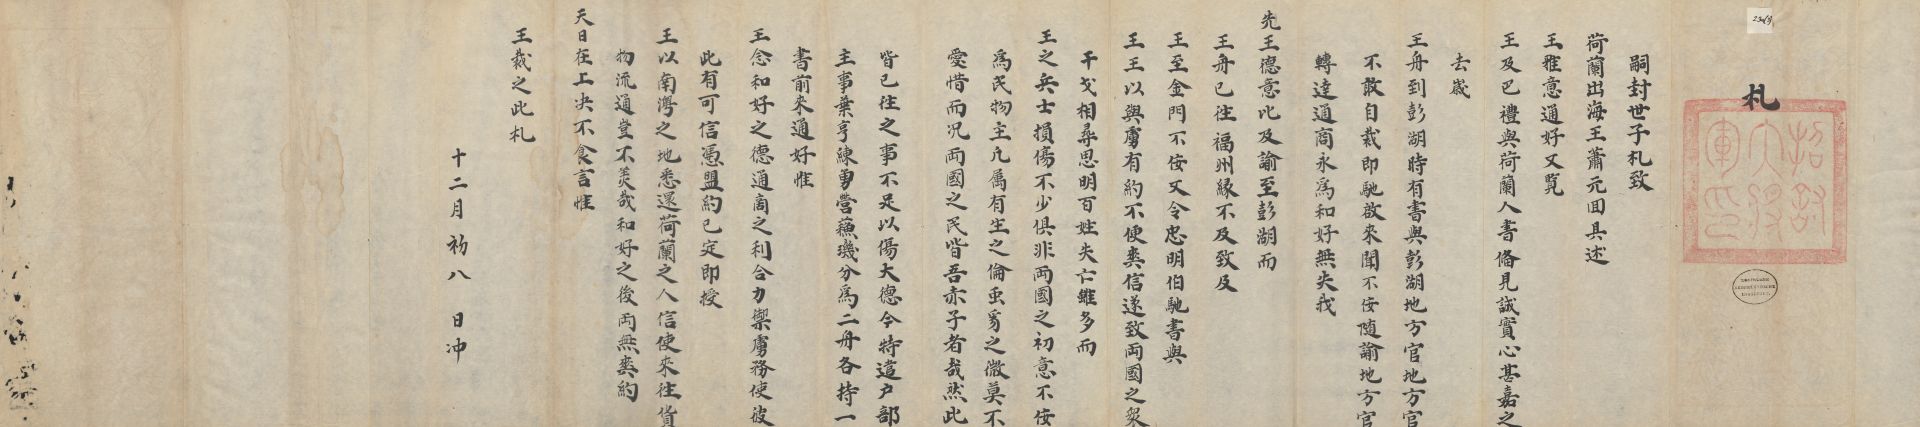 札
嗣封世子札致
荷蘭出海王蕭元回具述
王雅意通好又覧
王及巴禮與荷蘭人書俻見誠實心甚嘉之
去嵗
王舟到彭湖時有書與彭湖地方官地方官
不敢自裁即馳啟來聞不佞随諭地方官
轉達通商永為和好無失我
先王德意比及諭至彭湖而
王舟已徃福州緣不及致及
王至金門不佞又令忠明伯馳書與
王王以與虜有約不便爽信遂致両國之衆
干戈相尋思明百姓失亡雖多而
王之兵士損傷不少俱非両國之初意不佞
為民物主凡属有生之倫虫豸之微莫不
愛惜而况両國之民皆吾赤子者哉然此
皆已往之事不足以傷大德今特遣户部
主事葉亨練勇營蘓璣分為二舟各持一
書前來通好惟
王念和好之德通商之利合力禦虜務使彼
此有可信憑盟約已定即授
王以南灣之地悉還荷蘭之人信使來往貨
物流通豈不美哉和好之後両無爽約
天日在上决不食言惟
王裁之此札
十二月初八日冲
招討大將軍印
23613